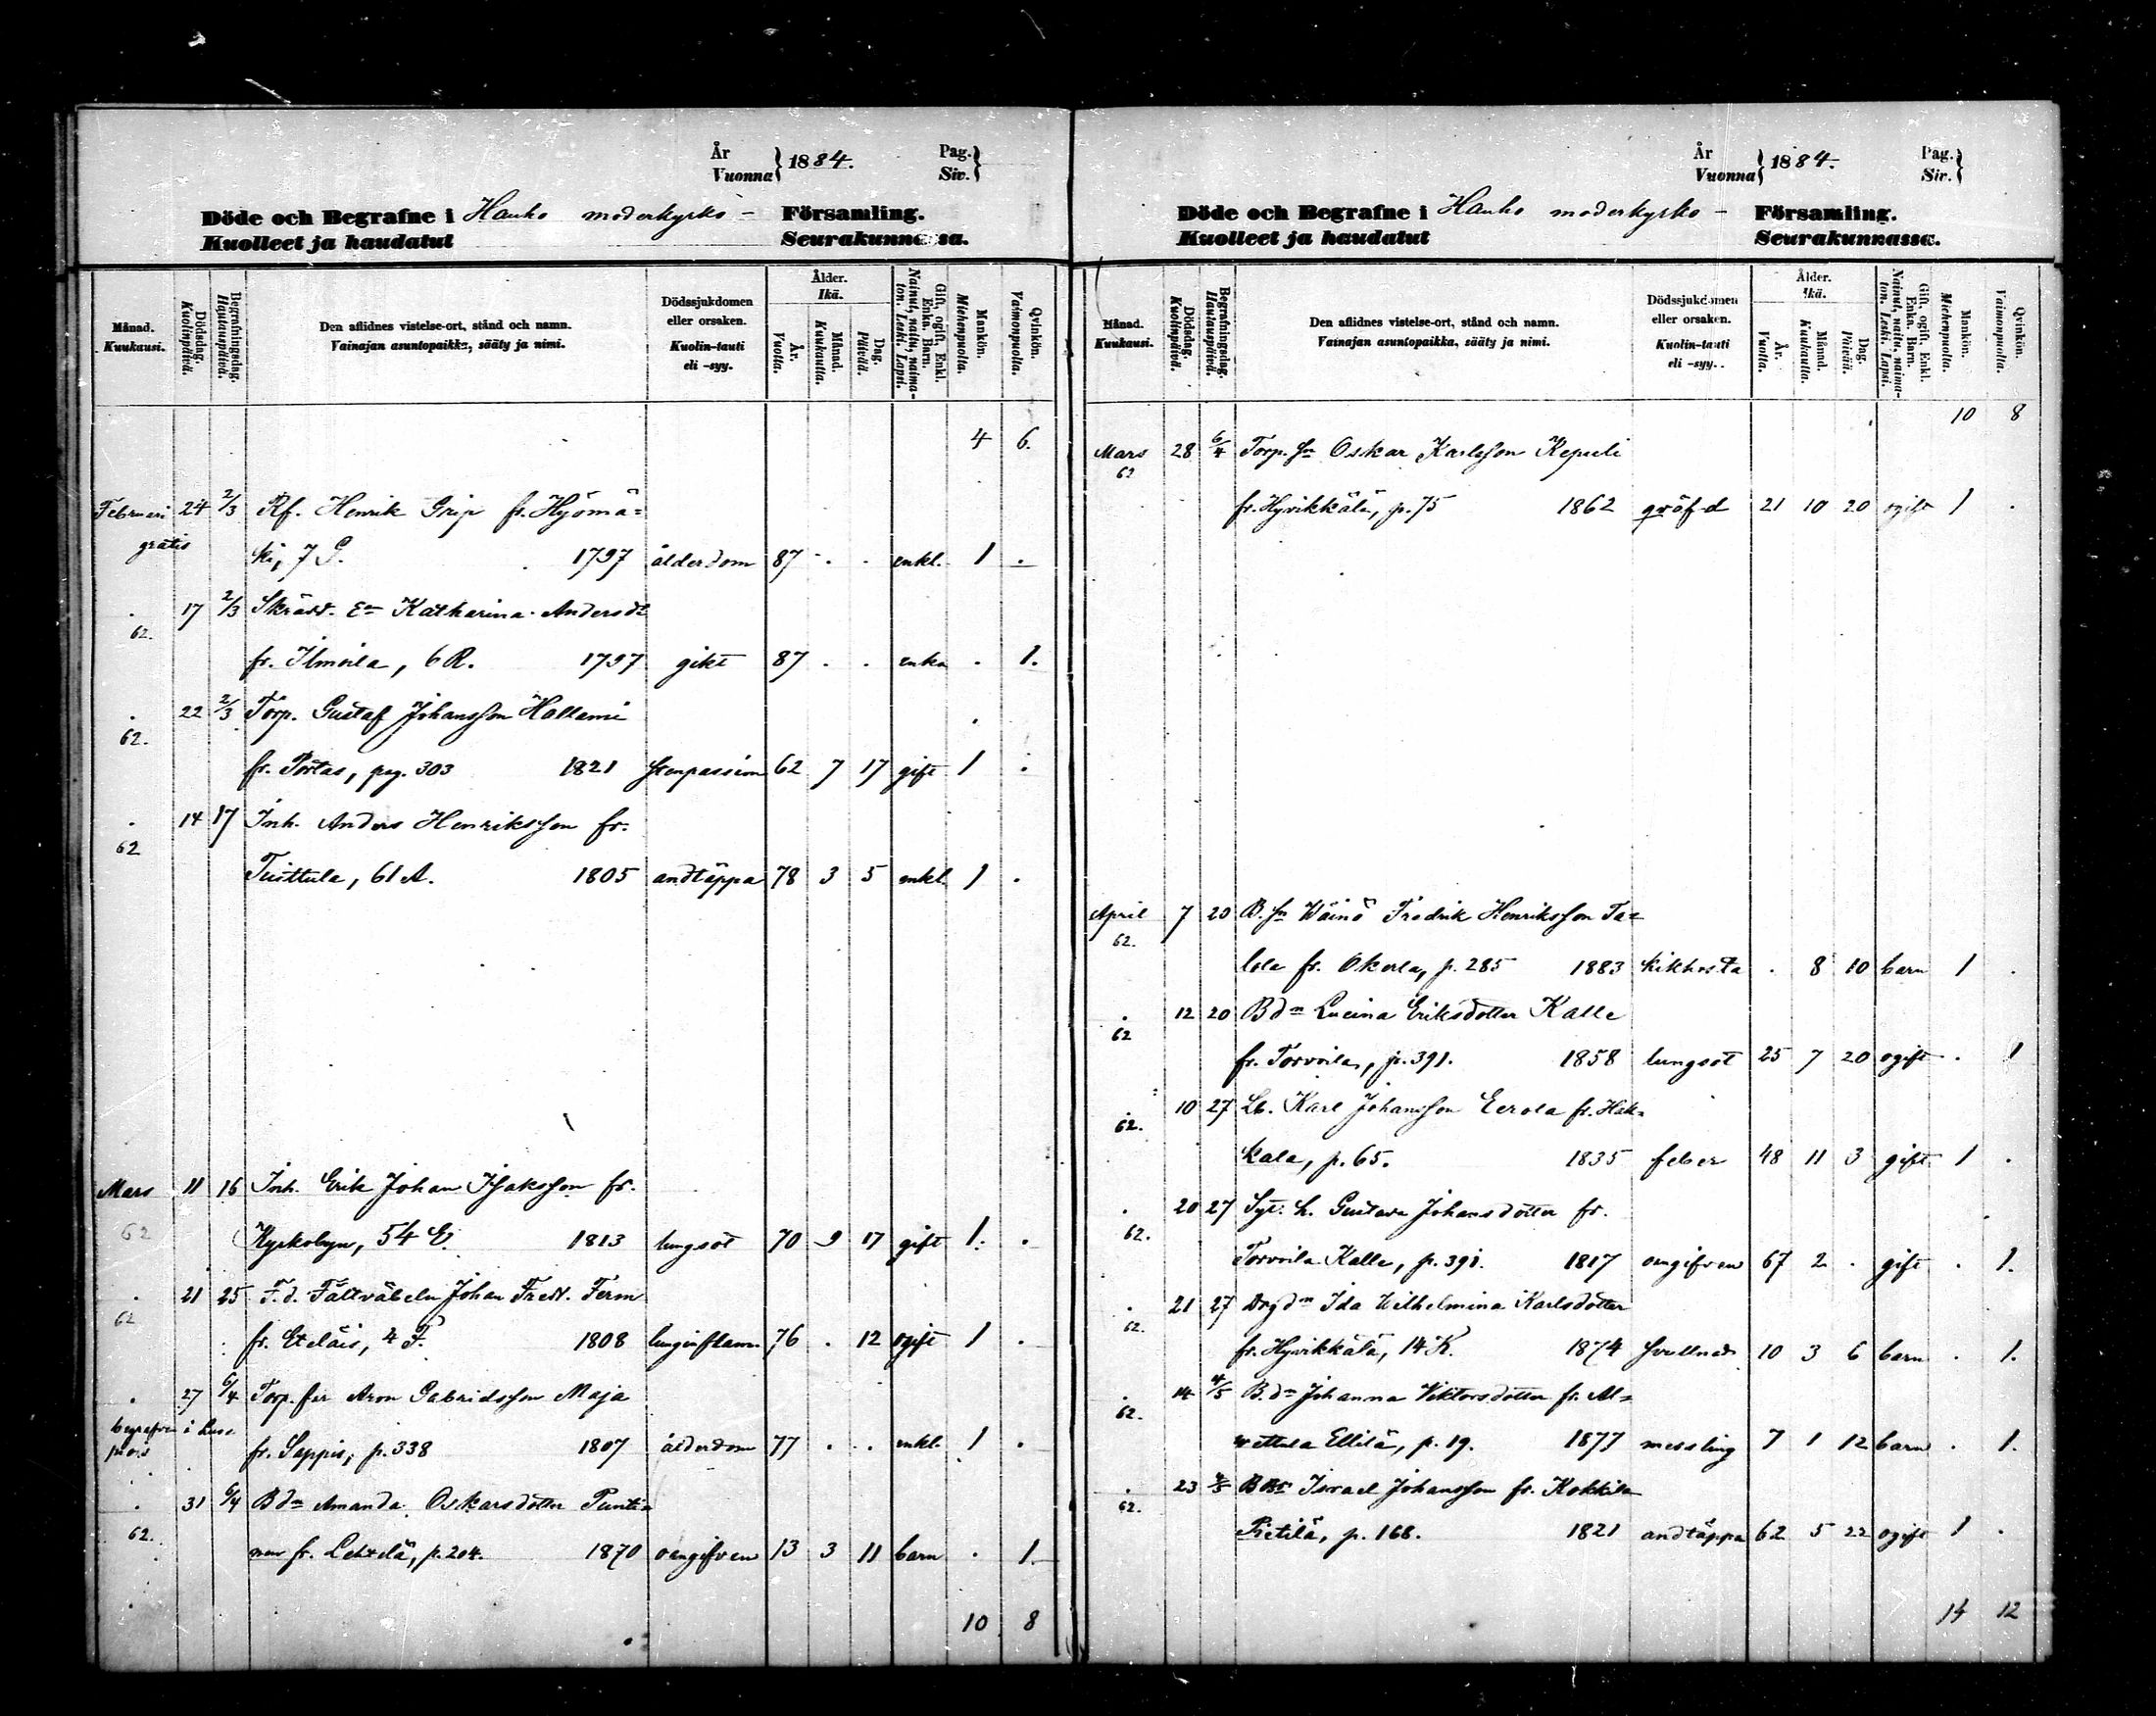 År
Vuonna } 1884.
Pag.
Siv. }
Döde och Begrafne i Hauho moderkyrko - Församling.
Kuolleet ja haudatut Seurakunnassa.
Månad. Kuukausi.
Dödsdag. Kuolinpäivä.
Begrafningsdag. Hautauspäivä.
Den aflidnes vistelse-ort, stånd och namn.
Vainajan asuntopaikka, sääty ja nimi.
Dödssjukdomen eller orsaken.
Kuolin-tauti eli -syy.
Ålder. Ikä.
År. Vuotta.
Månad. Kuukautta.
Dag. Päivää.
Gift, ogift, Enkl. Enka. Barn.
Nainut, naitu, naimaton. Leski. Lapsi.
Mankön. Miehenpuolta.
Qvinkön. Vaimonpuolta.
4 6.
Februari 24 2/3 Rf. Henrik Grip fr. Hyömä=
gratis ki, 7 G. 1797 ålderdom 87 - . . enkl. 1 .
. 17 2/3 Skrädd. En Katharina Andersdr
62. fr. Ilmoila, 6 R. 1797 gikt 87 . . enka . 1.
. 22 2/3 Torp. Gustaf Johansson Hallami
62. fr. Portas, pag. 303 1821 stenpassion 62 7 17 gift 1 .
. 14 17 Inh. Anders Henriksson fr.
62 Tuittula, 61 A. 1805 andtäppa 78 3 5 enkl. 1 .
Mars 11 16 Inh. Erik Johan Isaksson fr.
62 Kyrkobyn, 54 E. 1813 lungsot 70 9 17 gift 1. .
. 21 25 F.d. Fältväbeln Johan Fredr. Ferm
62 fr. Eteläis, 4 F. 1808 lunginflam. 76 . 12 ogift 1 .
. 27 6/4 Torp. far Aron Gabrielsson Maja
begrafven i Luo
pois fr. Sappis, p. 338 1807 ålderdom 77 . . enkl. 1 .
. 31 6/4 Bdn Amanda Oskarsdotter Punti=
62. nen fr. Lehtelä, p. 204. 1870 oangifven 13 3 11 barn . 1.
10 8
År
Vuonna } 1884.
Pag.
Siv. }
Döde och Begrafne i Hauho moderkyrko - Församling.
Kuolleet ja haudatut Seurakunnassa.
Månad. Kuukausi.
Dödsdag. Kuolinpäivä.
Begrafningsdag. Hautauspäivä.
Den aflidnes vistelse-ort, stånd och namn.
Vainajan asuntopaikka, sääty ja nimi.
Dödssjukdomen eller orsaken.
Kuolin-tauti eli -syy.
Ålder. Ikä.
År. Vuotta.
Månad. Kuukautta.
Dag. Päivää.
Gift, ogift, Enkl. Enka. Barn.
Nainut, naitu, naimaton. Leski. Lapsi.
Mankön. Miehenpuolta.
Qvinkön. Vaimonpuolta.
10 8
Mars 28 6/4 Torp. sn Oskar Karlsson Kepuli
62 fr. Hyvikkälä, p. 75 1862 21 10 20 ogift 1 .
April 7 20 B. sn Wäinö Fredrik Henriksson Ta=
62. lola fr. Okerla, p. 285 1883 kikhosta . 8 10 barn 1 .
. 12 20 Bdn Lucina Eriksdotter Kalle
62 fr. Torvoila, p. 391. 1858 lungsot 25 7 20 ogift . 1
. 10 27 Lb. Karl Johansson Eerola fr. Hak=
62. kala, p. 65. 1835 feber 48 11 3 gift 1 .
. 20 27 Syt. h. Gustava Johansdotter fr.
62. Torvoila Kalle, p. 391. 1817 oangifven 67 2 . gift . 1.
. 21 27 Drgdn Ida Wilhelmina Karlsdotter
62. fr. Hyvikkälä, 14 K. 1874 svullnad 10 3 6 barn . 1.
. 14 4/5 B.dn Johanna Viktorsdotter fr. Al=
62. vettula Ellilä, p. 19. 1877 messling 7 1 12 barn . 1.
. 23 4/5 Israel Johansson fr. Kokkila
62. Pietilä, p. 168. 1821 andtäppa 62 5 22 ogift 1 .
14 12